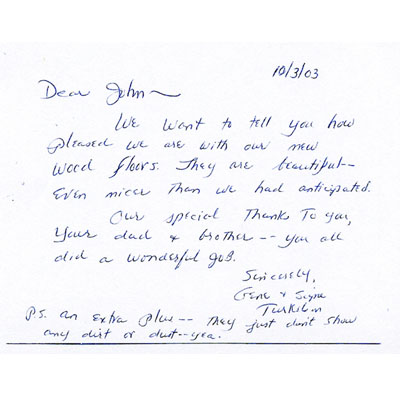 10/3/03
Dear John~
We want to tell you how
pleased we are with our new
wood floors. They are beautiful-
Even nicer than we had anticipated.
Our special thanks to you,
your dad & brother -- you all
did a wonderful job.
Sincerely,
Gene &
P.S. an extra plus -- they just don't show
any dirt or dust -- yea.